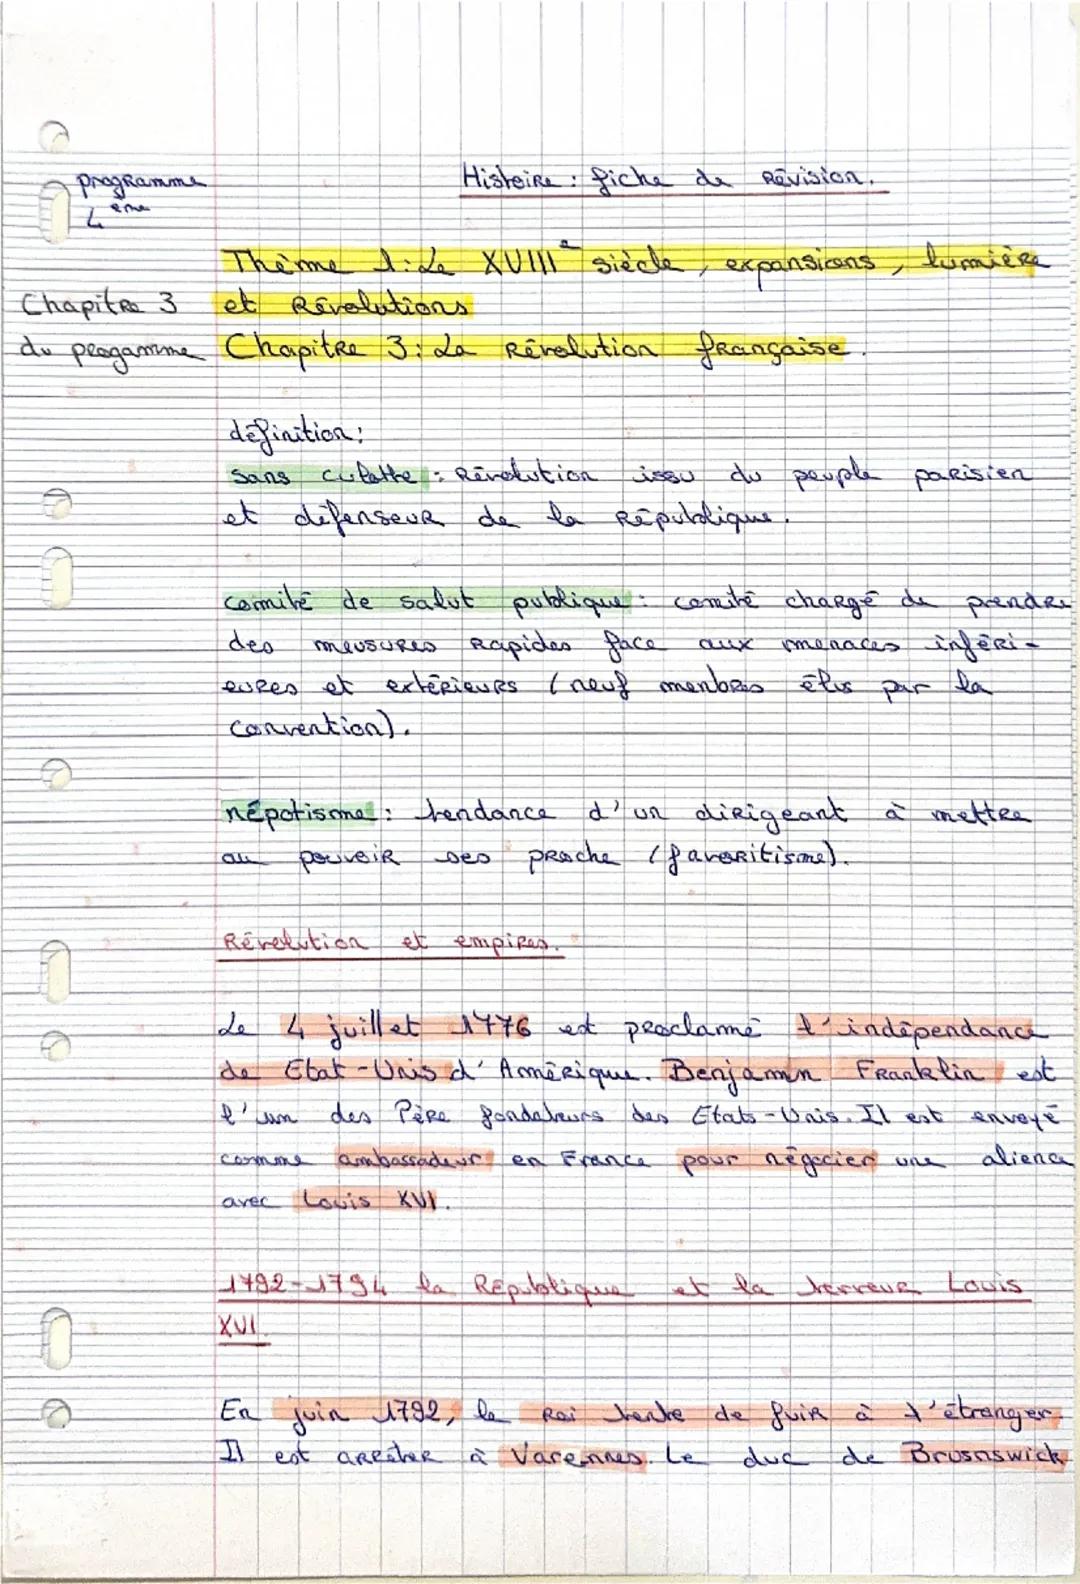 Histoire : fiche de Révision.
programme
4 ème
Thème 1 : Le XVIII e siècle, expansions, lumière
et Révolutions
Chapitre 3
du progamme
Chapitre 3 : La Révolution française.
définition :
sans culotte : Révolution issu du peuple parisien
et défenseur de la République.
comité de salut publique : comité chargé de prendre
des meusures Rapides face aux menaces inféri-
eures et extérieurs (neuf menbres élus par la
convention).
népotisme : tendance d'un dirigeant à mettre
au pouvoir ses proche (favoritisme).
Révolution et empires.
Le 4 juillet 1776 est proclammé l'indépendance
de Etat-Unis d'Amérique. Benjamin Franklin est
l'un des Père fondateurs des Etats-Unis. Il est envoyé
comme ambassadeur en France pour négocier une alience
avec Louis XVI.
1792-1794 la République et la terreur Louis
XVI.
En juin 1792, le Roi tente de fuir à l'étranger.
Il est arrêter à Varennes. Le duc de Brusnswick